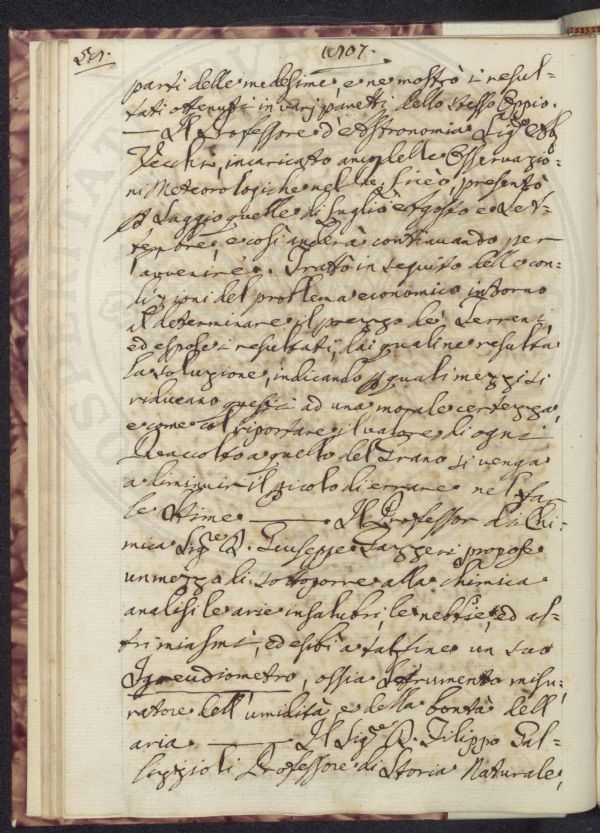 1807.
parti delle medesime, e ne mostrò i resul-
tati ottenuti in varj panetti dello stesso Oppio.
— Il Professore d'Astronomia Sig.e Ab.
Vecchi, incaricato anco delle Osservazio-
ni Meteorologiche nel Liceo, presentò
Saggio quelle di Luglio Agosto e Set-
tembre, e così anderà continuando per
l'avvenire. Trattò in seguito delle con-
dizioni del problema economico intorno
al determinare il prezzo dei Terreni,
ed espose i resultati, dai quali ne resulta
la soluzione, indicando quali mezzi si
riducano questi ad una morale certezza,
e come col riportare il valore di ogni
Raccolto a quello del Grano si venga
a diminuir il picolo di errare nel fa-
re Stime — Il Professor di Chi-
mica Sig.e D. Giuseppe Gazzeri propose
un mezzo di sottoporre alla chimica
analisi le arie insalubri, le nebbie, ed al-
tri miasmi, ed esibì a tal fine un suo
Igreudiometro, ossia Istrumento misu-
ratore dell'umidità e della bontà dell'
aria — Il Sig.e D. Filippo Gal-
lizzioli Professore di Storia Naturale,